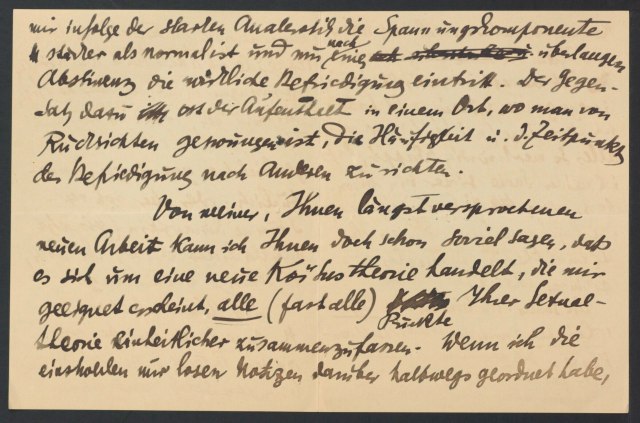 mir infolge der starken Analerotik die Spannungskomponente
stärker als normal ist und nur nach einer überlangen
Abstinenz die wirkliche Befriedigung eintritt. Der Gegen-
satz dazu ist der Aufenthalt in einem Ort, wo man von
Rücksichten gezwungen ist, die Häufigkeit u. d. Zeitpunkt
der Befriedigung nach Anderen zu richten.
Von meiner, Ihnen längst versprochenen
neuen Arbeit kann ich Ihnen doch schon soviel sagen, daß
es sich um eine neue Koitustheorie handelt, die mir
geeignet erscheint, alle (fast alle) Ihrer Sexual-
Punkte
theorie einheitlicher zusammenzufassen. Wenn ich die
einstweilen nur losen Notizen darüber halbwegs geordnet habe,